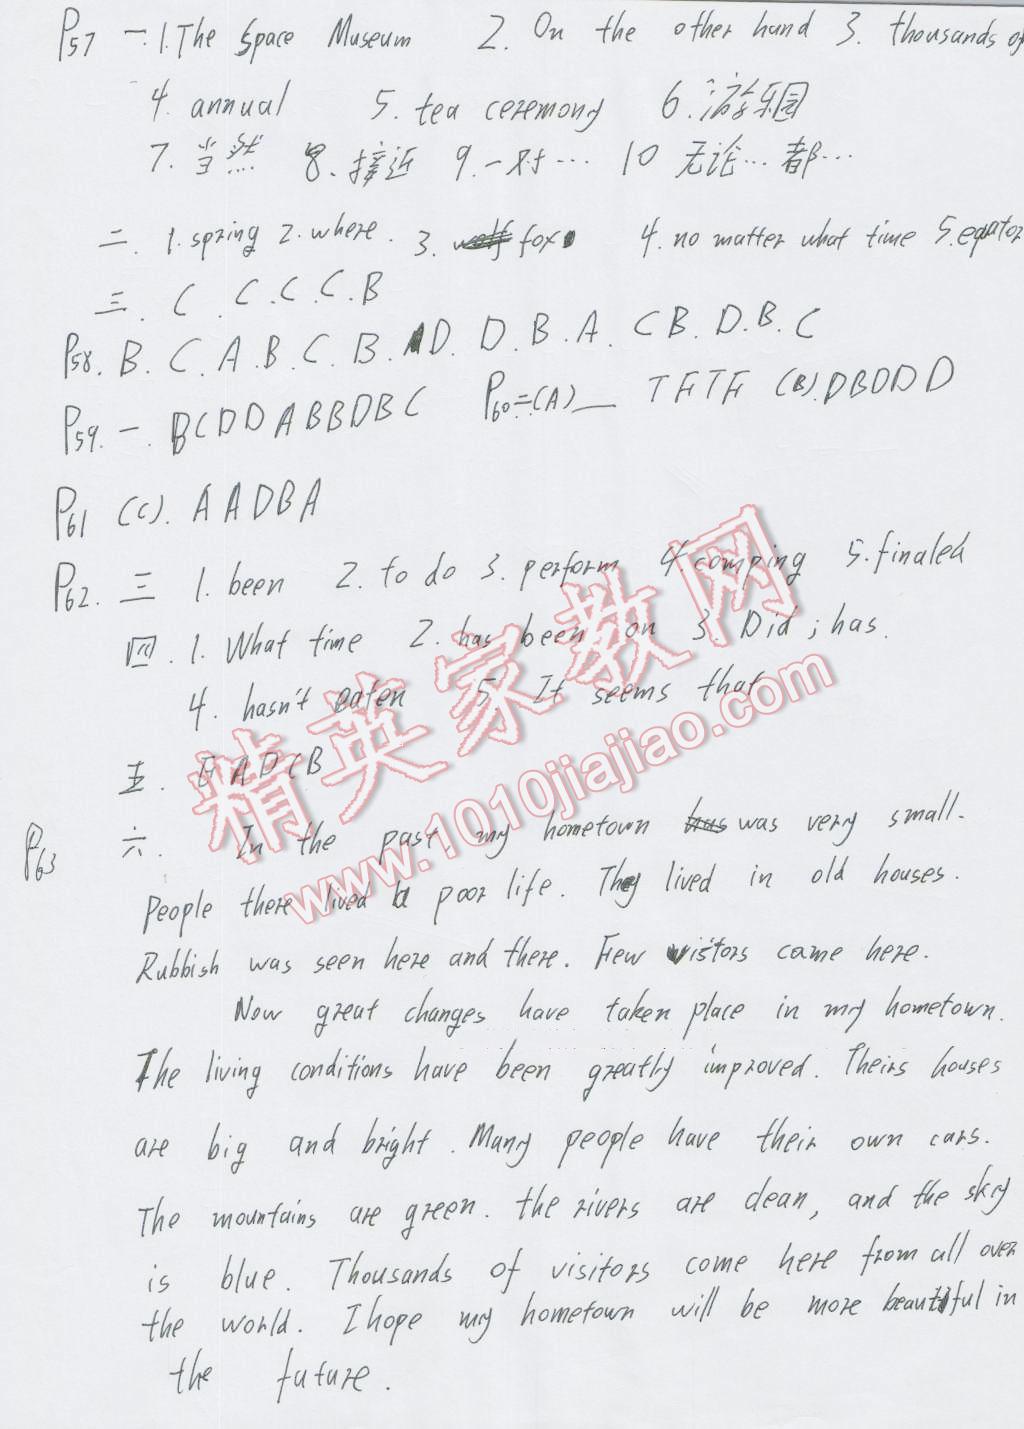 P57 一.1.The Space Museum 2. On the other hand 3. thousands of
4. annual 5. tea ceremony 6.游乐园
7.当然 8.接近 9.一对… 10 无论…都…
二.1.spring 2.where. 3. wolf fox 4. no matter what time 5.equator
三. C .C.C.C.B
P58. B. C. A.B. C. B. D. D.B.A. CB.D.B.C
P59.一. BCDDABBDBC P60二(A)__ TFTF (B).DBDDD
P61 (C). AADBA
P62. 三 1. been 2. to do 3. perform 4. comping 5.finaled
四.1. What time 2. has been on 3. Did ; has.
4. hasn't eaten 5. It seems that
五. EADCB
精英家教网
www.1010jiajiao.com
P63 六. In the past my hometown has was very small.
People there lived a poor life. They lived in old houses.
Rubbish was seen here and there. Few visitors came here.
Now great changes have taken place in my hometown.
The living conditions have been greatly improved. Theirs houses
are big and bright. Many people have their own cars.
The mountains are green. the rivers are clean, and the sky
is blue. Thousands of visitors come here from all over
the world. I hope my hometown will be more beautiful in
the future.